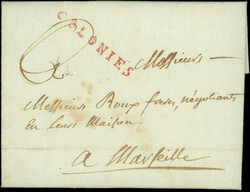 COLONIES
A Messieurs
Messieurs Roux freres, négotiants
En leurs Maison
a Marseille